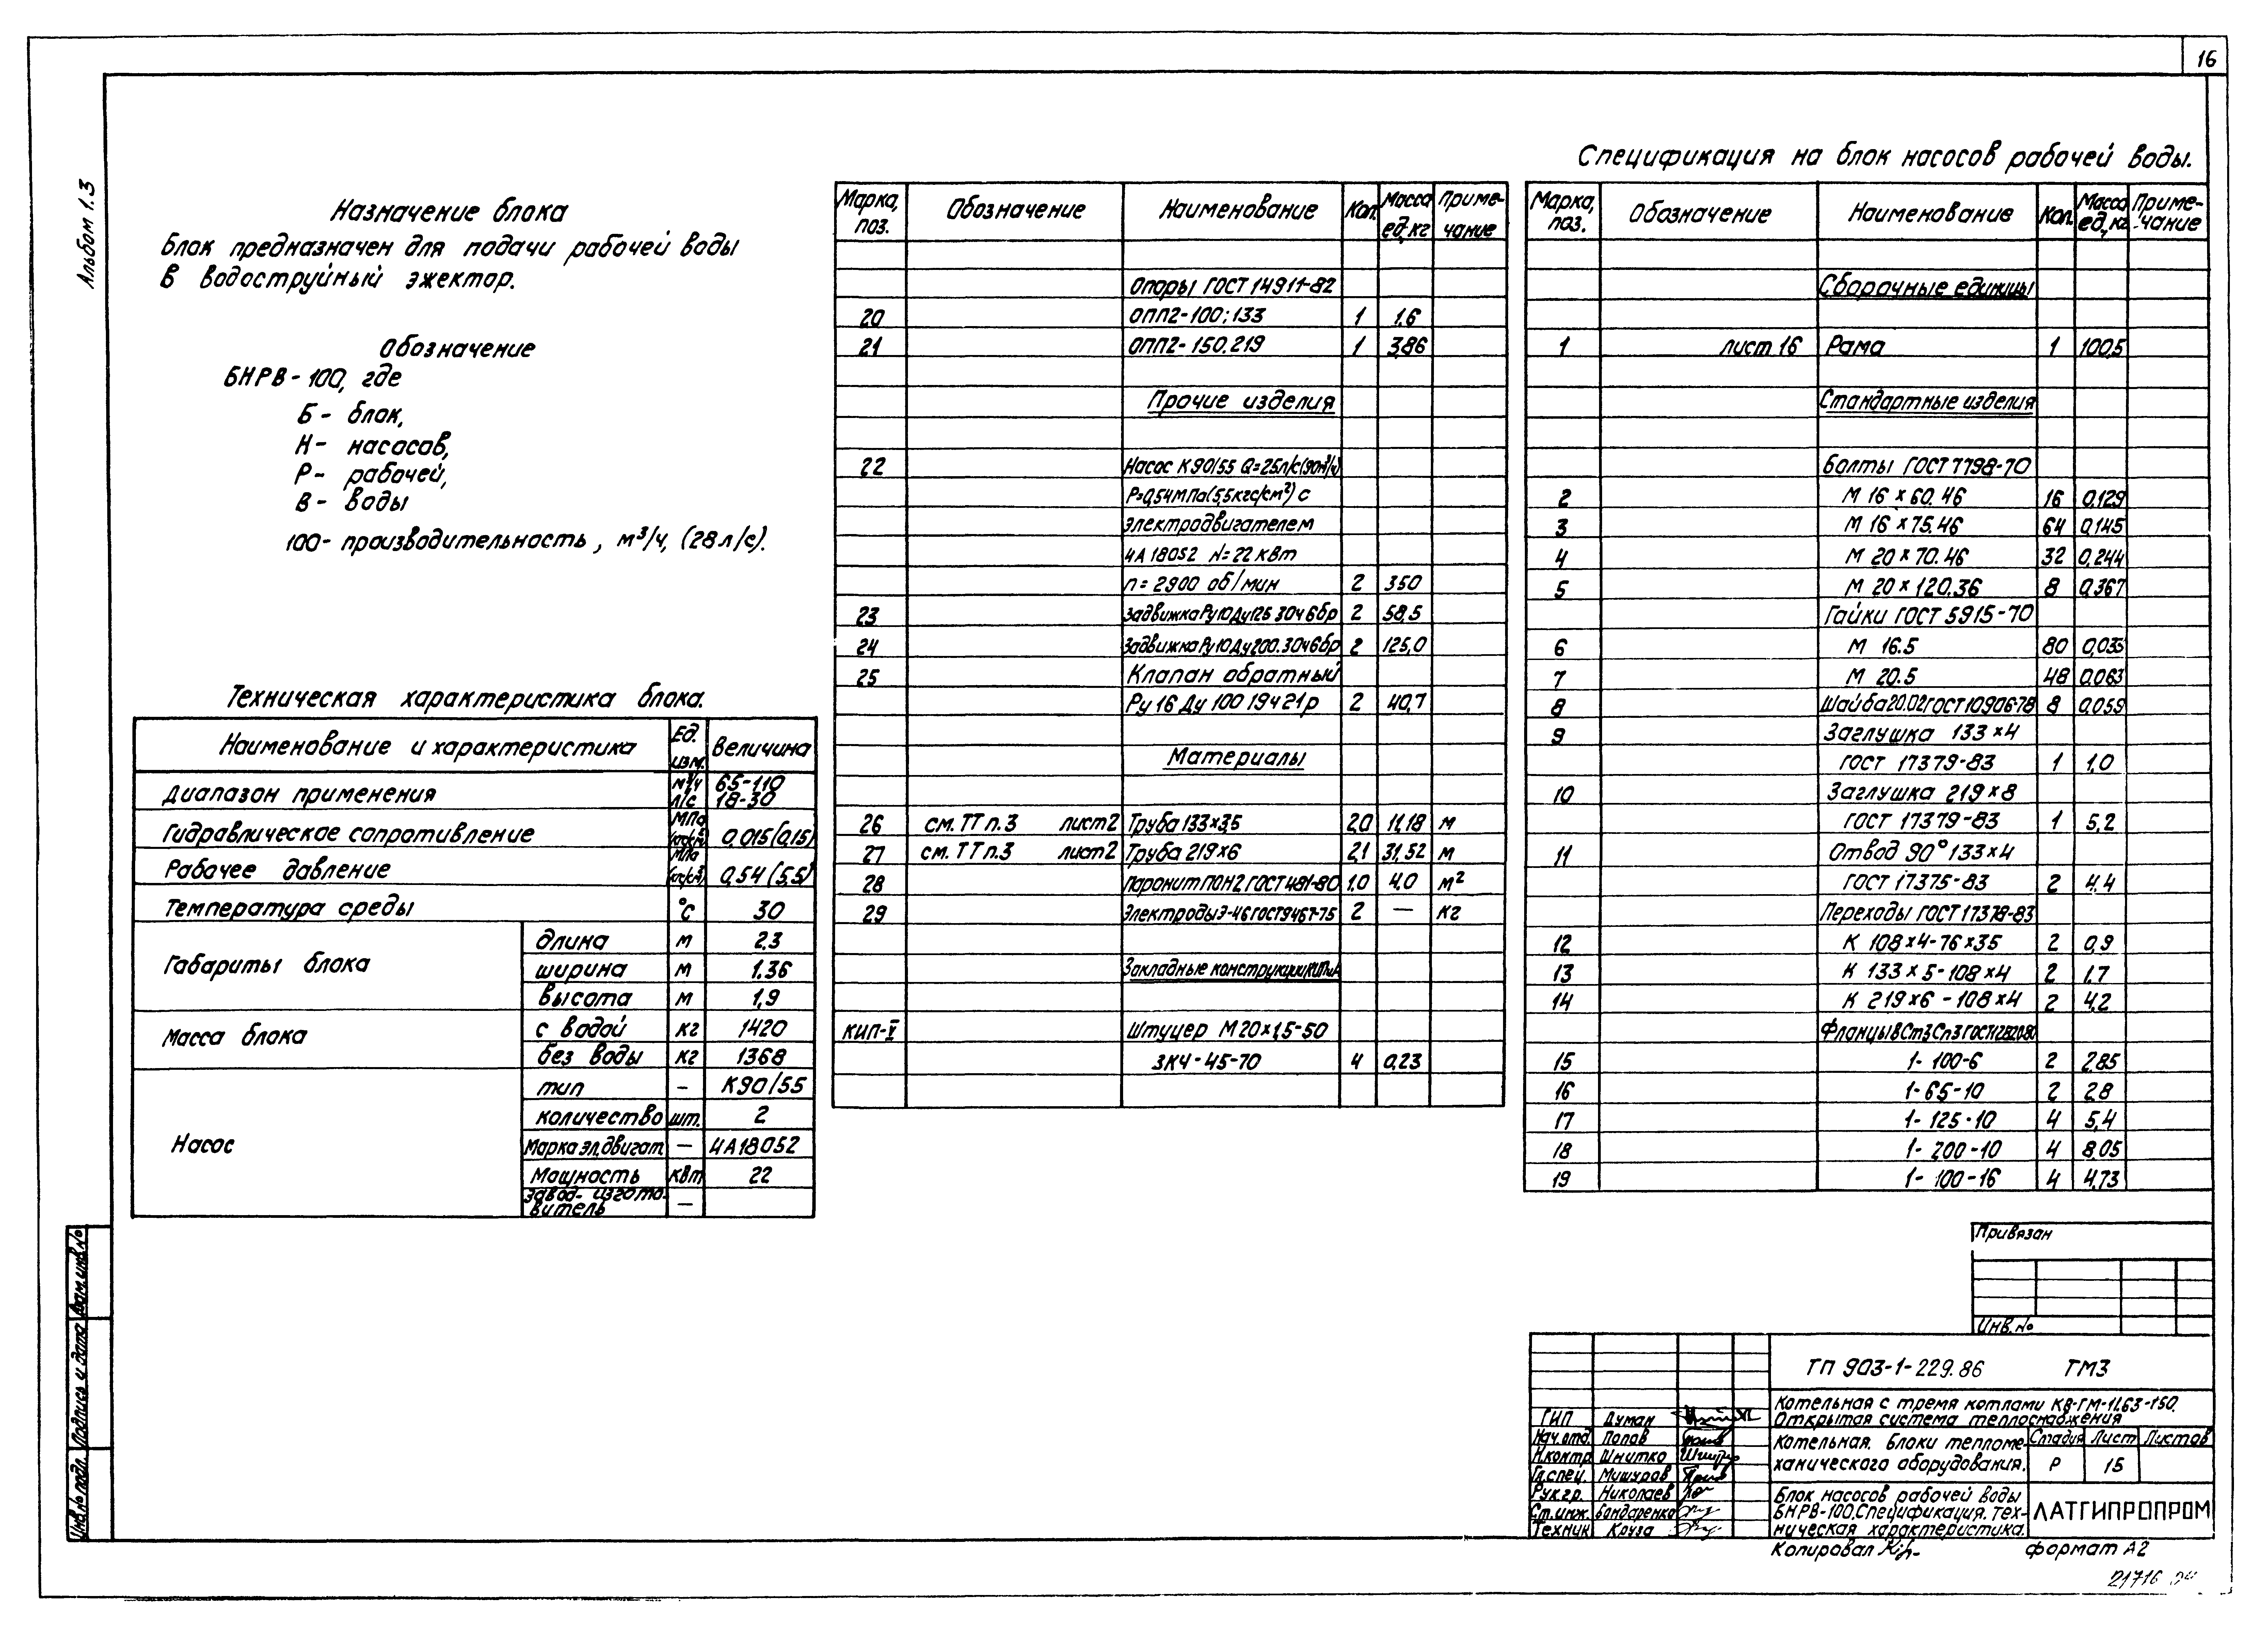 16
Альбом 1.3
Назначение блока
Блок предназначен для подачи рабочей воды
в водоструйный эжектор.
Обозначение
БНРВ-100, где
Б- блок,
Н- насосов,
Р- рабочей,
В- воды
100- производительность, м³/ч, (28 л/с).
Техническая характеристика блока.
Наименование и характеристика | Ед. изм. | Величина
Диапазон применения | м³/ч л/с | 65-110 18-30
Гидравлическое сопротивление | МПа (кгс/см²) | 0,015(0,15)
Рабочее давление | МПа (кгс/см²) | 0,54(5,5)
Температура среды | °С | 30
Габариты блока | длина | м | 2,3
ширина | м | 1,36
высота | м | 1,9
Масса блока | с водой | кг | 1420
без воды | кг | 1368
Насос | тип | – | К90/55
количество | шт. | 2
Марка эл.двигат. | – | 4А180S2
Мощность | кВт | 22
завод-изгото-
витель | –
Марка, поз. | Обозначение | Наименование | Кол. | Масса ед, кг | Приме-чание
Опоры ГОСТ 14911-82
20 | ОПП2-100; 133 | 1 | 1,6
21 | ОПП2-150.219 | 1 | 3,86
Прочие изделия
22 | Насос К90/55 Q=25л/с(90м³/ч)
Р=0,54МПа(5,5кгс/см²) с
электродвигателем
4А180S2 N=22 кВт
n=2900 об/мин | 2 | 350
23 | Задвижка Ру10 Ду125 30ч6бр | 2 | 58,5
24 | Задвижка Ру10 Ду200.30ч6бр | 2 | 125,0
25 | Клапан обратный
Ру16 Ду 100 19ч21р | 2 | 40,7
Материалы
26 | см. ТТ п.3 лист 2 | Труба 133×3,5 | 2,0 | 11,18 | м
27 | см. ТТ п.3 лист 2 | Труба 219×6 | 2,1 | 31,52 | м
28 | Паронит ПОН2 ГОСТ 481-80 | 1,0 | 4,0 | м²
29 | Электроды Э-46 ГОСТ 9467-75 | 2 | — | кг
Закладные конструкции КИПиА
КИП-V | Штуцер М20×1,5-50
ЗК4-45-70 | 4 | 0,23
Спецификация на блок насосов рабочей воды.
Марка, поз. | Обозначение | Наименование | Кол. | Масса ед, кг | Приме-чание
Сборочные единицы
1 | лист 16 | Рама | 1 | 100,5
Стандартные изделия
Болты ГОСТ 7798-70
2 | М 16×60.46 | 16 | 0,129
3 | М 16×75.46 | 64 | 0,145
4 | М 20×70.46 | 32 | 0,244
5 | М 20×120.36 | 8 | 0,367
Гайки ГОСТ 5915-70
6 | М 16.5 | 80 | 0,033
7 | М 20.5 | 48 | 0,063
8 | Шайба 20.02 ГОСТ 10906-78 | 8 | 0,059
9 | Заглушка 133×4
ГОСТ 17379-83 | 1 | 1,0
10 | Заглушка 219×8
ГОСТ 17379-83 | 1 | 5,2
11 | Отвод 90° 133×4
ГОСТ 17375-83 | 2 | 4,4
Переходы ГОСТ 17378-83
12 | К 108×4-76×3,5 | 2 | 0,9
13 | К 133×5-108×4 | 2 | 1,7
14 | К 219×6-108×4 | 2 | 4,2
Фланцы ВСт3Сп3 ГОСТ 12820-80
15 | 1-100-6 | 2 | 2,85
16 | 1-65-10 | 2 | 2,8
17 | 1-125-10 | 4 | 5,4
18 | 1-200-10 | 4 | 8,05
19 | 1-100-16 | 4 | 4,73
Привязан
Инв.№
ТП 903-1-229.86 ТМ3
Котельная с тремя котлами КВ-ГМ-11,63-150.
Открытая система теплоснабжения
ГИП Думан
Нач.отд. Попов
Н.контр. Шнитко
Гл.спец. Мишуров
Рук.гр. Николаев
Ст.инж. Бондаренко
Техник Круза
Котельная. Блоки тепломе-
ханического оборудования.
Стадия Лист Листов
Р 15
Блок насосов рабочей воды
БНРВ-100.Спецификация. Тех-
ническая характеристика.
ЛАТГИПРОПРОМ
Копировал
формат А2
21716
Взам. инв.№
Подпись и дата
Инв.№ подл.